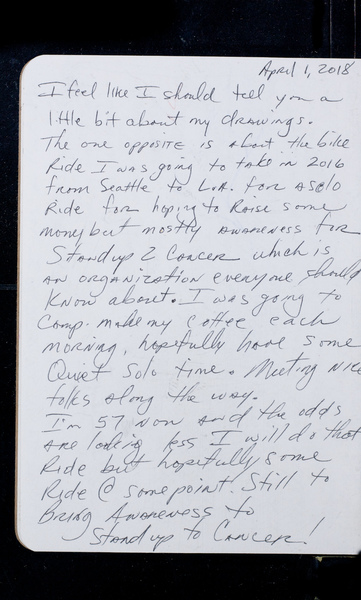 April 1, 2018
I feel like I should tell you a
little bit about my drawings.
The one opposite is about the bike
Ride I was going to take in 2016
from Seattle to L.A. for a solo
Ride for hoping to Raise some
money but mostly awareness for
Stand up 2 Cancer which is
an organization everyone should
know about. I was going to
camp. make my coffee each
morning, hopefully have some
Quiet solo time. Meeting nice
folks along the way.
I'm 57 now and the odds
are looking less I will do that
Ride but hopefully some
Ride @ some point. Still to
Bring Awareness to
Stand up to Cancer!